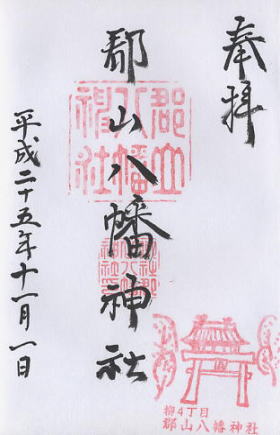 奉拝
郡山八幡神社
平成二十五年十一月一日
郡山八幡神社
柳4丁目
郡山八幡神社